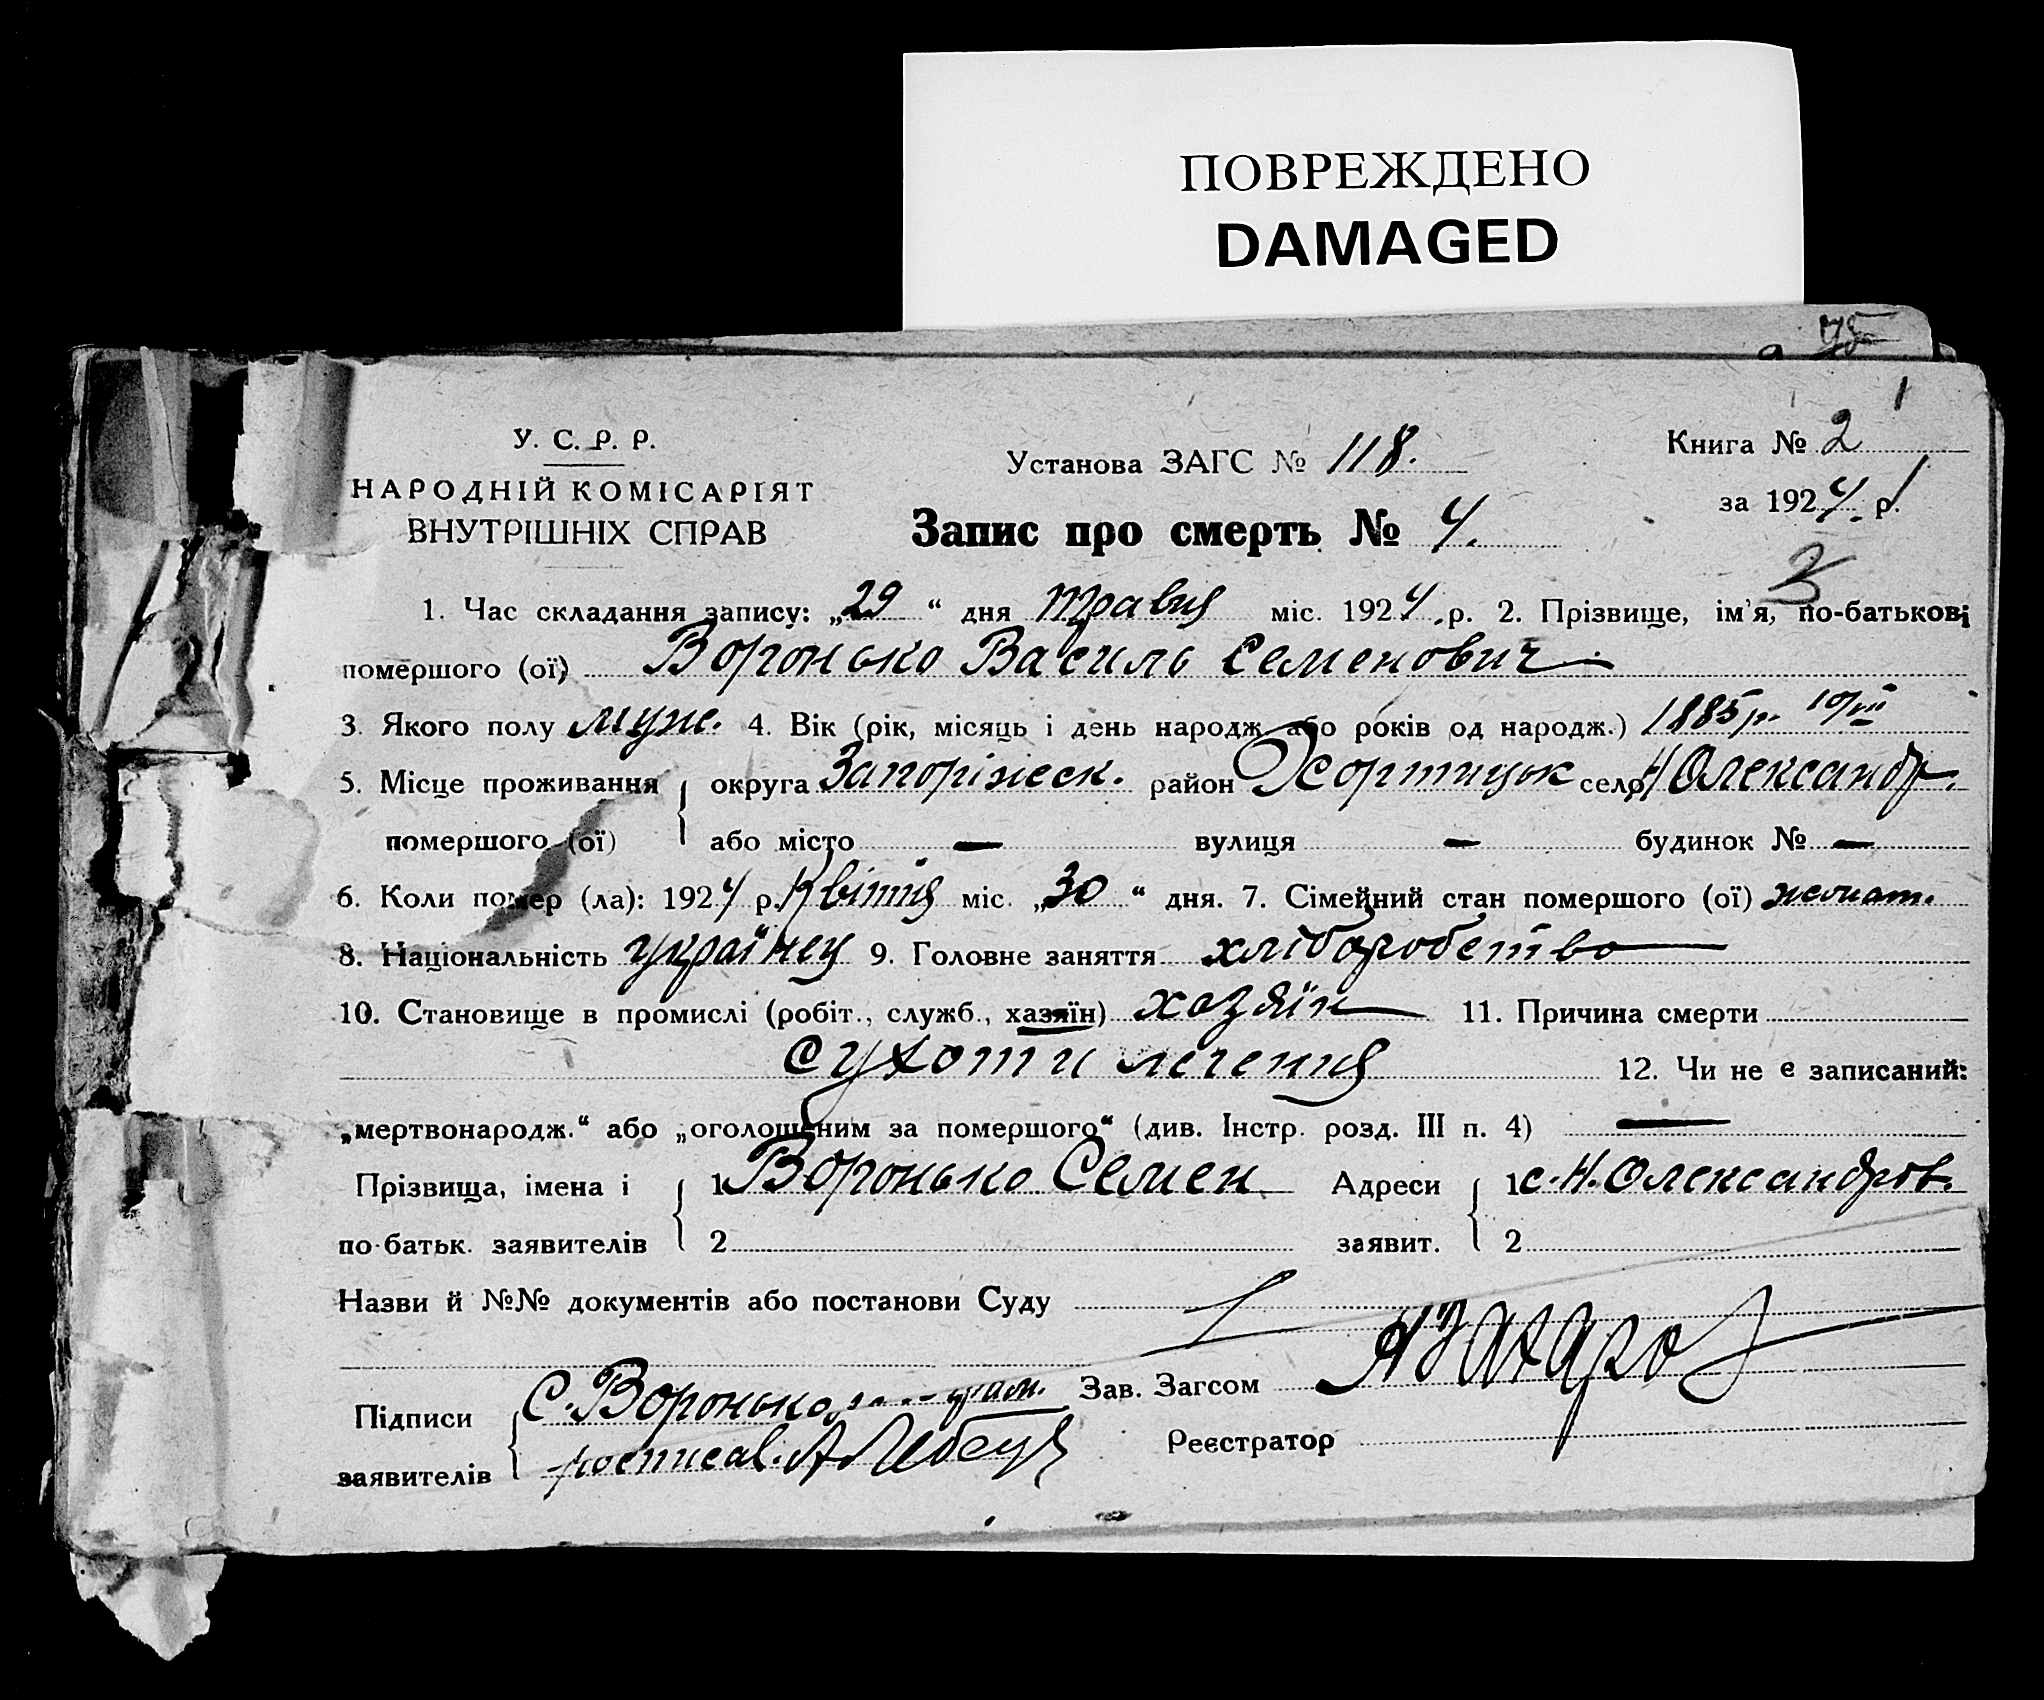 ПОВРЕЖДЕНО
DAMAGED
75
1
У. С. Р. Р.
НАРОДНІЙ КОМІСАРІЯТ
ВНУТРІШНІХ СПРАВ
Установа ЗАГС № 118.
Книга № 2
за 1924. р.
Запис про смерть № 4.
3
1. Час складання запису: „29“ дня травня міс. 1924. р. 2. Прізвище, ім'я, по-батькові
помершого (ої) Воронько Василь Семенович
3. Якого полу муж. 4. Вік (рік, місяць і день народж. або років од народж.) 1885 р. 10/VIII
5. Місце проживання { округа Запоріжск. район Хортицьк село Н Олександр.
помершого (ої) або місто — вулиця — будинок № —
6. Коли помер (ла): 1924 р. Квітня міс. „30“ дня. 7. Сімейний стан помершого (ої) жонат.
8. Національність українец 9. Головне заняття хліборобство
10. Становище в промислі (робіт., служб., хазяїн) хозяїн 11. Причина смерти
Сухоти легення 12. Чи не є записаний:
„мертвонародж.“ або „оголошеним за помершого“ (див. Інстр. розд. III п. 4) —
Прізвища, імена і { 1 Воронько Семен Адреси { 1 с. Н. Олександров.
по-батьк. заявителів 2 заявит. 2
Назви й №№ документів або постанови Суду
Підписи { С. Воронько Зав. Загсом А Захаров
заявителів Реєстратор